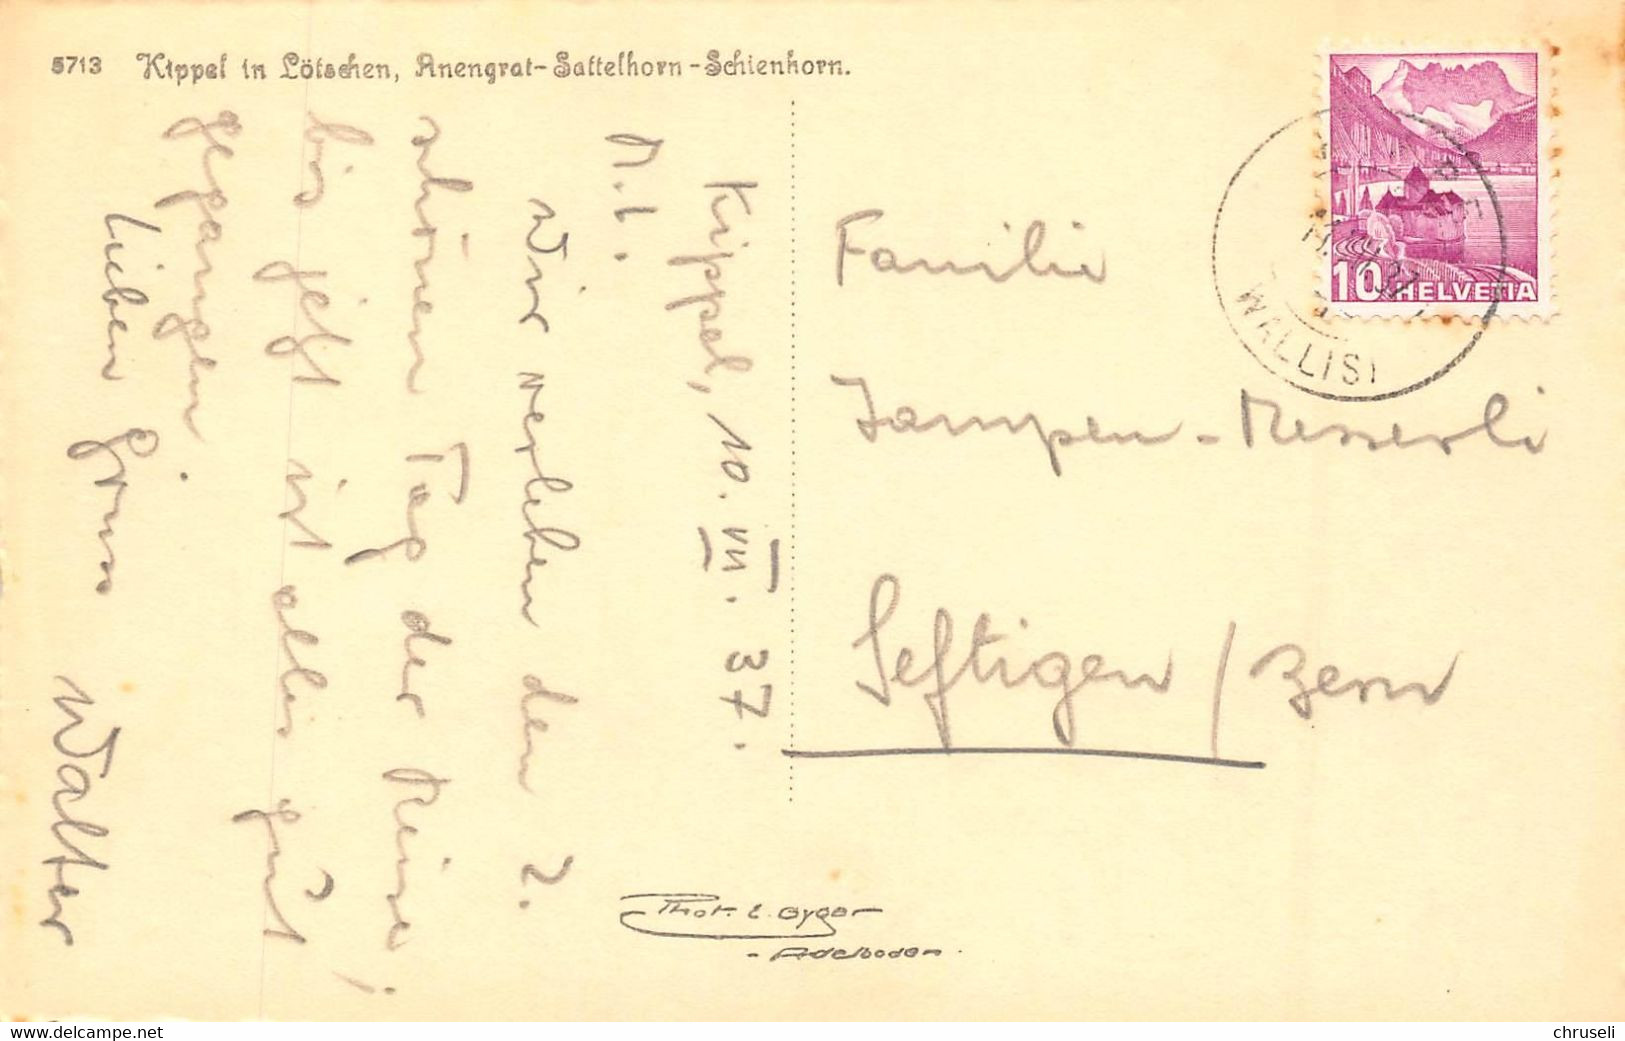 5713 Kippel in Lötschen, Anengrat-Sattelhorn-Schienhorn.
Kippel, 10. VII. 37.
M. L.
Wir verleben den 2.
schönen Tag der Reise!
bis jetzt ist alles gut
gegangen.
Lieben Gruss
Walter
Familie
Zampen-Messerli
Seftigen / Bern
Phot. E. Gyger
- Adelboden -
10 HELVETIA
WALLIS
www.delcampe.net
chruseli